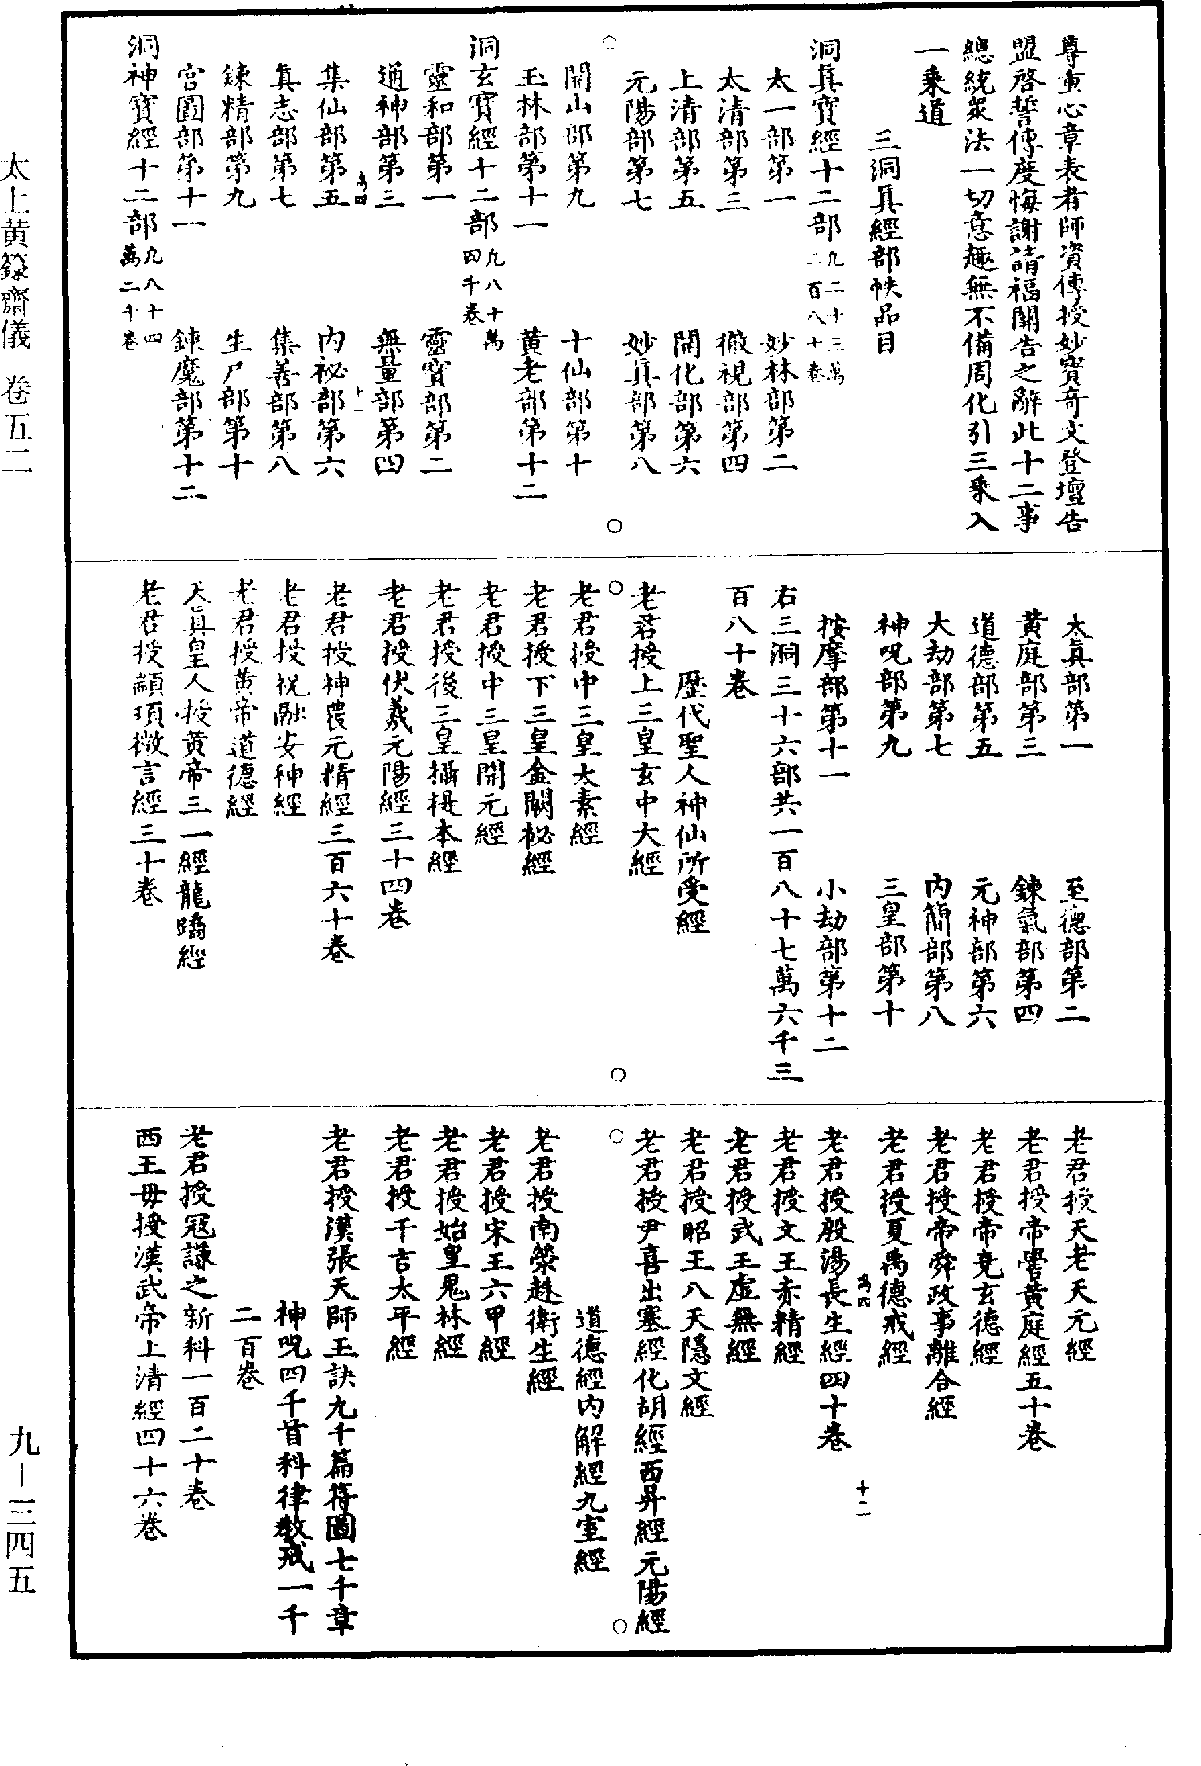 尊重心章表者師資傳授妙寶奇文登壇告
盟啓誓傳度悔謝請福關告之辭此十二事
總統衆法一切意趣無不備周化引三乘入
一乘道
三洞真經部帙品目
洞真寶經十二部九二十三萬二百八十卷
太一部第一　妙林部第二
太清部第三　徹視部第四
上清部第五　開化部第六
元陽部第七　妙真部第八
開山部第九　十仙部第十
玉林部第十一　黃老部第十二
洞玄寶經十二部九八十萬四千卷
靈和部第一　靈寶部第二
通神部第三　無量部第四
集仙部第五　內祕部第六
真志部第七　集善部第八
鍊精部第九　生尸部第十
宮圖部第十一　鍊魔部第十二
洞神寶經十二部九八十四萬二千卷
太真部第一　至德部第二
黃庭部第三　鍊氣部第四
道德部第五　元神部第六
大劫部第七　內簡部第八
神呪部第九　三皇部第十
按摩部第十一　小劫部第十二
右三洞三十六部共一百八十七萬六千三
百八十卷
歷代聖人神仙所受經
老君授上三皇玄中大經
老君授中三皇太素經
老君授下三皇金闕祕經
老君授中三皇開元經
老君授後三皇攝提本經
老君授伏羲元陽經三十四卷
老君授神農元精經三百六十卷
老君授祝融安神經
老君授黃帝道德經
天真皇人授黃帝三一經龍蹻經
老君授顓頊微言經三十卷
老君授天老天元經
老君授帝嚳黃庭經五十卷
老君授帝堯玄德經
老君授帝舜政事離合經
老君授夏禹德戒經
老君授殷湯長生經四十卷
老君授文王赤精經
老君授武王虛無經
老君授昭王八天隱文經
老君授尹喜出塞經化胡經西昇經元陽經
道德經內解經九室經
老君授南榮趎衛生經
老君授宋王六甲經
老君授始皇鬼林經
老君授干吉太平經
老君授漢張天師玉訣九千篇符圖七千章
神呪四千首科律教戒一千
二百卷
老君授寇謙之新科一百二十卷
西王母授漢武帝上清經四十六卷
十一
十二
太上黃籙齋儀　卷五二
九—三四五